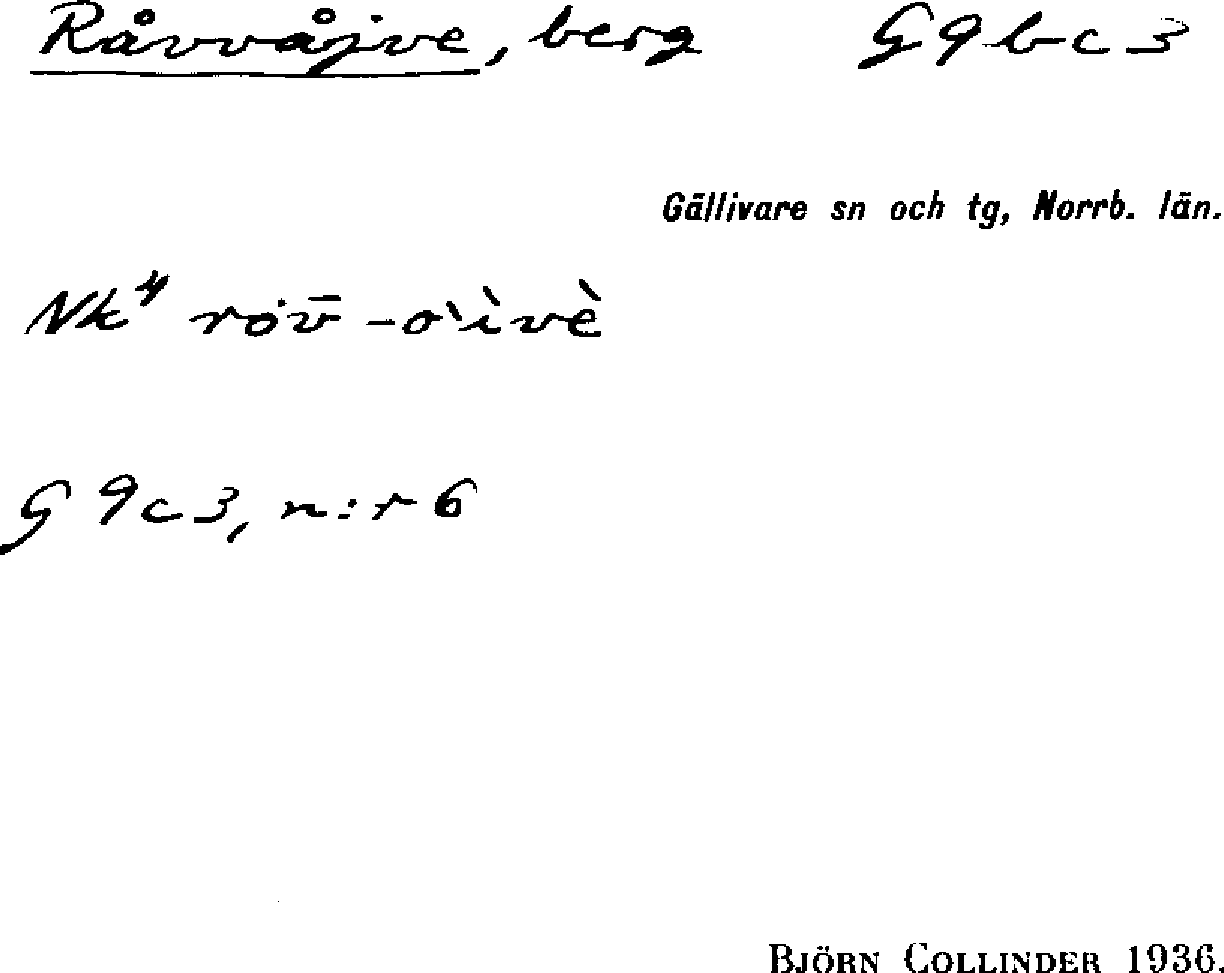 Råvvåjve, berg G9bc3
Gällivare sn och tg, Norrb. län.
Nk⁴ rȯv̄ -o`ìvè
G 9c3, n:r 6
BJÖRN COLLINDER 1936.